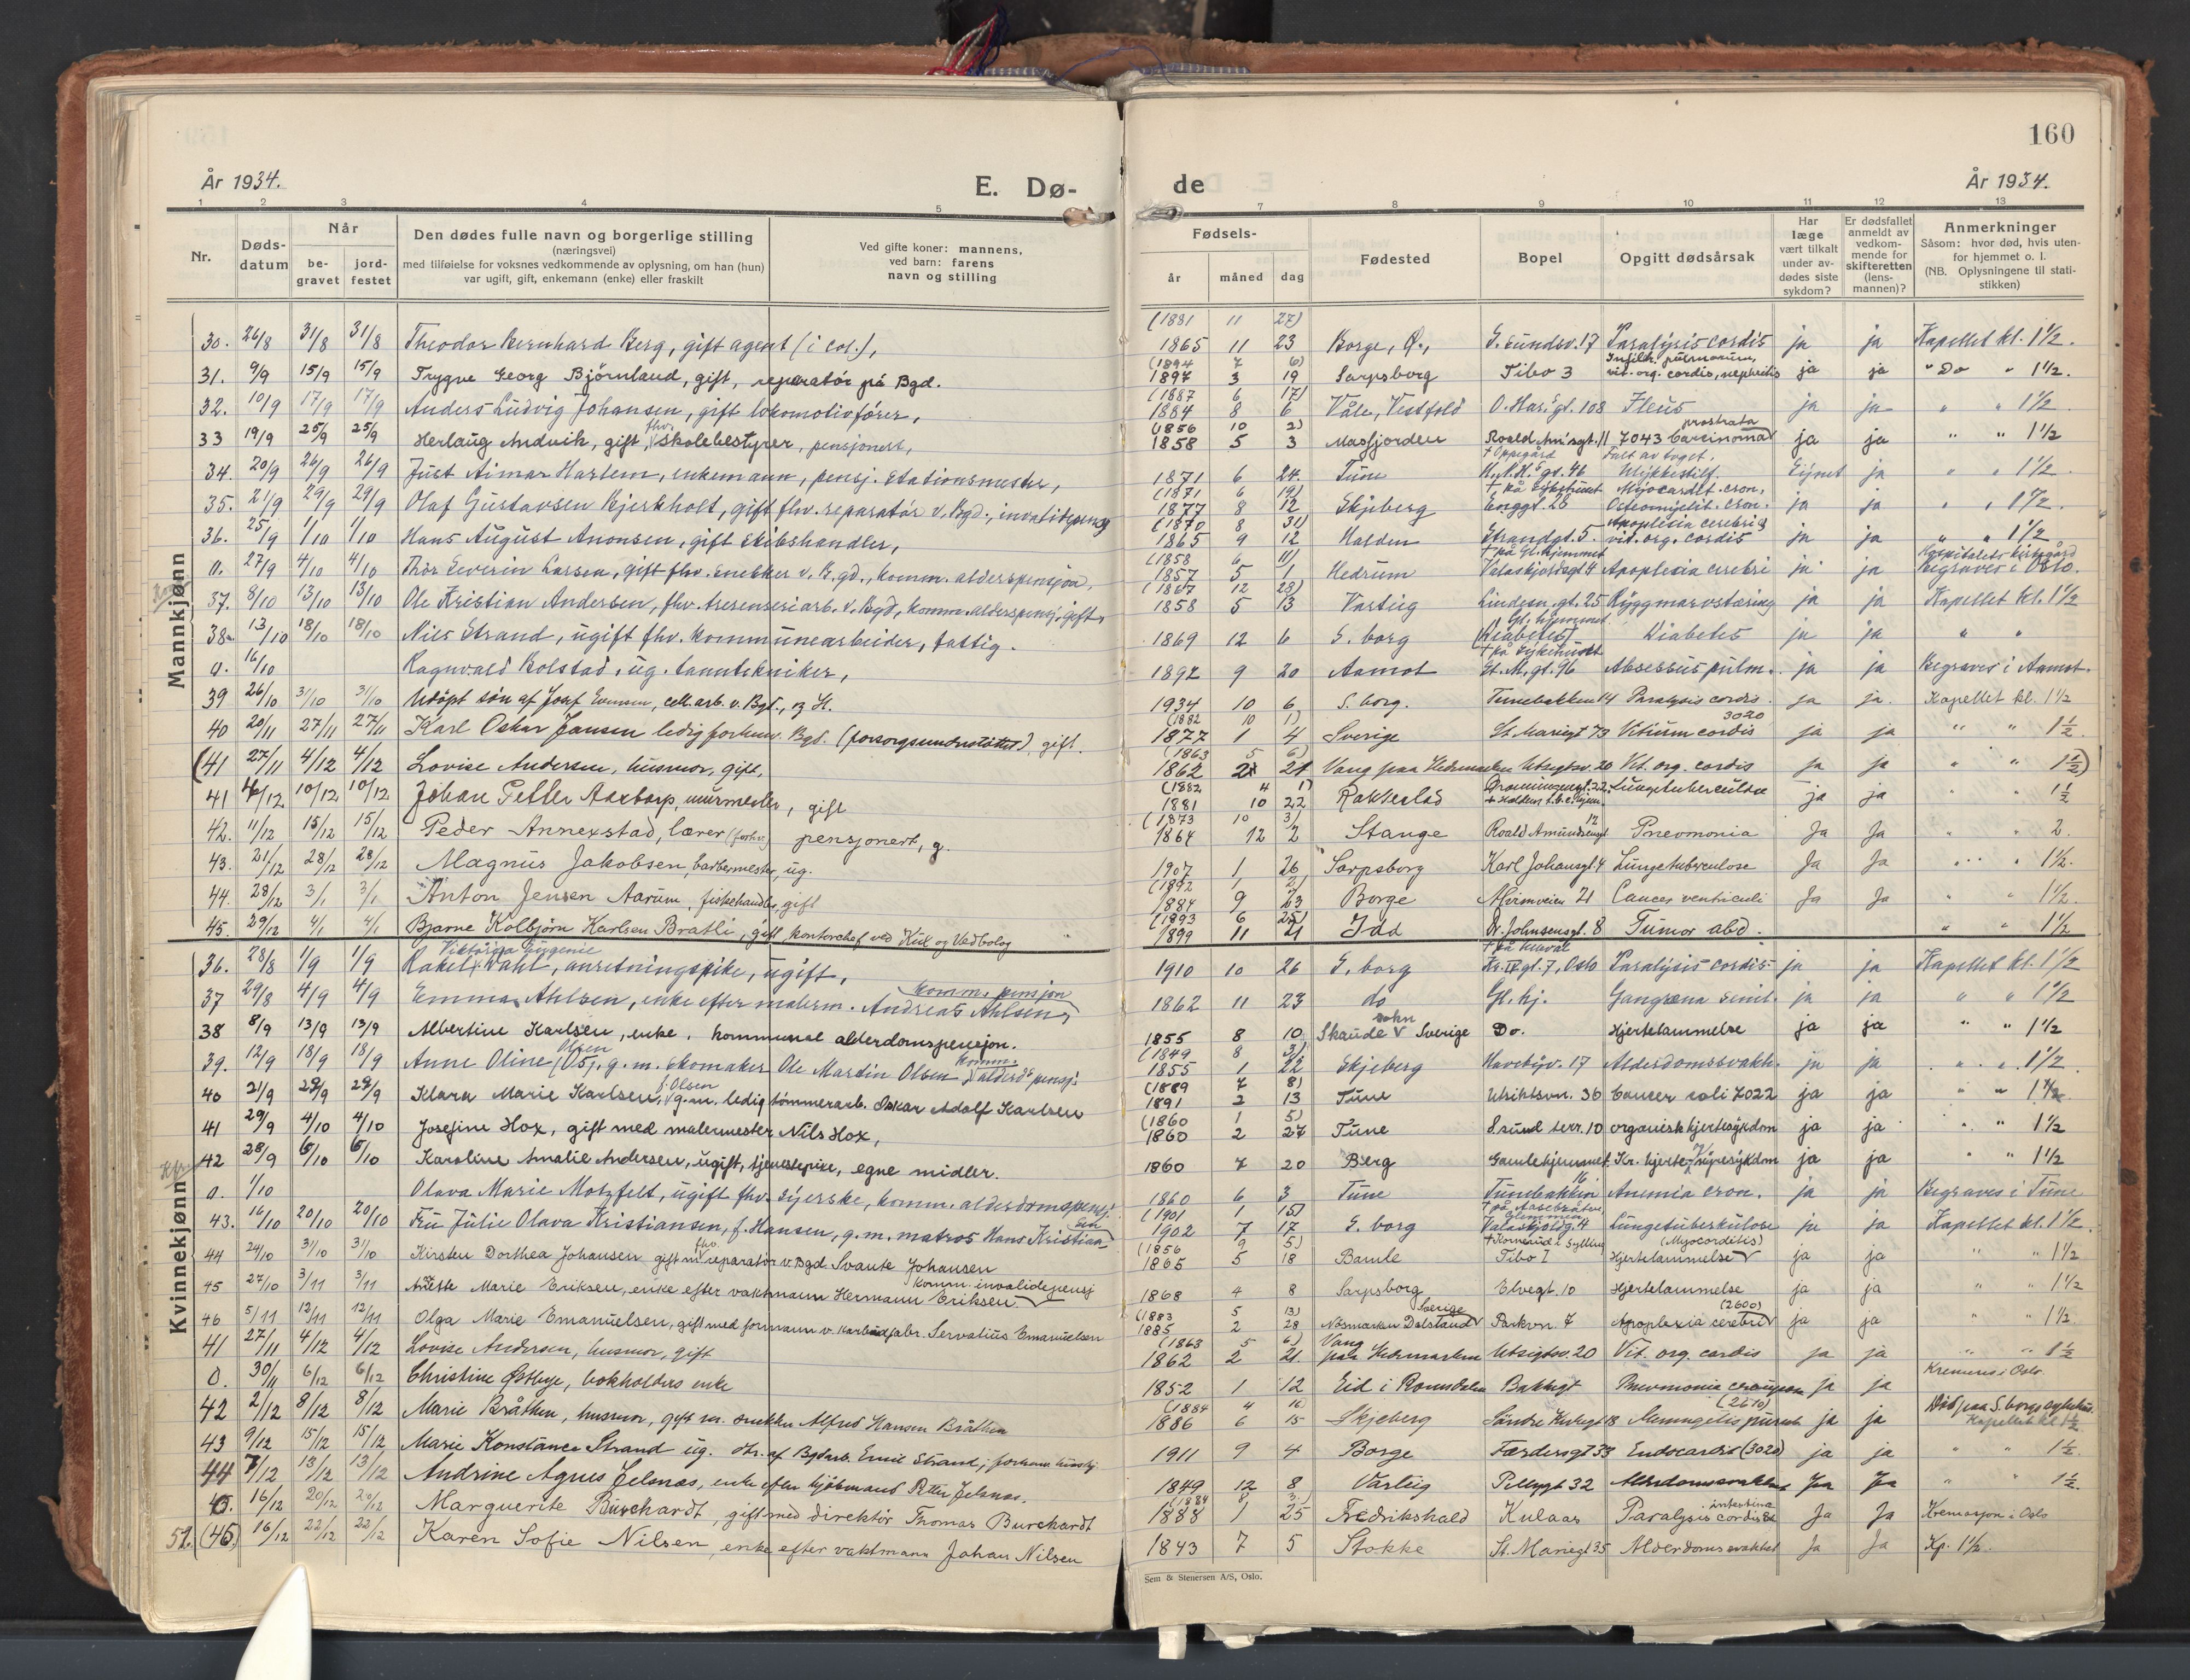 160
År 1934.
E. Dø-
de
År 1934.
1 2 3 4 5 7 8 9 10 11 12 13
Nr.
Døds-
datum
Når
be-
gravet
jord-
festet
Den dødes fulle navn og borgerlige stilling
(næringsvei)
med tilføielse for voksnes vedkommende av oplysning, om han (hun)
var ugift, gift, enkemann (enke) eller fraskilt
Ved gifte koner: mannens,
ved barn: farens
navn og stilling
Fødsels-
år måned dag
Fødested
Bopel
Opgitt dødsårsak
Har
læge
vært tilkalt
under av-
dødes siste
sykdom?
Er dødsfallet
anmeldt av
vedkom-
mende for
skifteretten
(lens-
mannen)?
Anmerkninger
Såsom: hvor død, hvis uten-
for hjemmet o. l.
(NB. Oplysningene til stati-
stikken)
Mannkjønn
(1881 11 27)
30. 26/8 31/8 31/8 Theodor Bernhard Berg, gift agent (i col.), 1865 11 23 Borge, Ø., S. sundsv. 17 Paralysis cordis ja ja Kapellet kl. 1½.
(1894 7 6) Infiltr. pulmonum,
31. 9/9 15/9 15/9 Trygve Georg Bjørnland, gift, reparatør på Bgd. 1897 3 19 Sarpsborg Tibo 3 vit. org. cordis, nephritis ja ja " Do " 1½.
(1887 6 17)
32. 10/9 17/9 17/9 Anders Ludvig Johansen, gift lokomotivfører, 1884 8 6 Våle, Vestfold O. Har. gt. 108 Ileus ja ja " " 1½
(1856 10 2) prostrata
33 19/9 25/9 25/9 Herlaug Andvik, gift, fhv. skolebestyrer, pensjonert, 1858 5 3 Masfjorden Roald Am'sgt. 11 7043 Carcinoma ja ja " " 1½
† Oppegård Falt av toget.
34. 20/9 26/9 26/9 Just Aimar Harlem, enkemann, pensj. stationsmester, 1871 6 24 Tune H.N.H.s gt. 46 Ulykkestilf. ja " " 1½
(1871 6 19) † på sykehuset Myocardit. cron,
35. 21/9 29/9 29/9 Olaf Gustavsen Bjerkholt, gift fhv. reparatør v. Bgd., invalidepensj 1877 8 12 Skjeberg Enggt. 28 Osteomyelit. cron. ja ja " " 1½.
(1870 8 31) Apoplexia cerebri
36. 25/9 1/10 1/10 Hans August Anonsen, gift skibshandler, 1865 9 12 Halden Strandgt. 5 vit. org. cordis ja ja " " 1½
(1858 6 11) † på Gl. hjemmet
0. 27/9 4/10 4/10 Thor Severin Larsen, gift fhv. snekker v. B.gd., komm. alderspensjon, 1857 5 1 Hedrum Valaskjoldsgt 4 Apoplexia cerebri ja ja Begraves i Oslo.
(1867 12 28)
37. 8/10 13/10 13/10 Ole Kristian Andersen, fhv. v. Bgd, komm. alderspensj. gift, 1858 5 13 Varteig Lindesn. gt. 25 Ryggmarvstæring ja ja Kapellet kl. 1½
Gl. hjemmet
38. 13/10 18/10 18/10 Nils Strand, ugift fhv. kommunearbeider, fattig. 1869 12 6 S. borg (Diabetes) Diabetes ja ja " "
† på sykehuset
0. 16/10 Ragnvald Bolstad, ug. tanntekniker, 1892 9 20 Aamot St. M. gt. 96 Absessus pulm. ja ja Begraves i Aamot.
39 26/10 31/10 31/10 Udøpt søn af Josef Evensen, cell. arb. v. Bgd., og H. 1934 10 6 S. borg. Tunebakken 14 Paralysis cordis. ja ja. Kapellet kl. 1½
(1882 10 1) 3020
40 20/11 27/11 27/11 Karl Oskar Jansen ledig forhenv. Bgd. (forsorgsunderstøttet) gift. 1877 1 4 Sverige St. Mariegt 73 Vitium cordis ja ja " " 1½.
(1863 5 6)
(41 27/11 4/12 4/12 Lovise Andersen, husmor, gift, 1862 2 21 Vang paa Hedmarken Utsigtsv. 20 Vit. org. cordis ja ja " " 1½)
(1882 4 1)
41 4/12 10/12 10/12 Johan Petter Aartorp, murmester, gift 1881 10 22 Rakkestad † Haldens t.b.c. hjem Lungetuberculose ja ja " " 1½
(1873 10 3) 12
42. 11/12 15/12 15/12 Peder Annexstad, lærer (forhv.) pensjonert, g. 1864 12 2 Stange Roald Amundsengt Pneomonia Ja Ja " " 2.
43. 21/12 28/12 28/12 Magnus Jakobsen, barbermester, ug. 1907 1 26 Sarpsborg Karl Johansgt. 4 Lungetuberculose Ja Ja " " 1½.
(1892 1 2)
44. 28/12 3/1 3/1 Anton Jensen Aarum, fiskehandler, gift 1884 9 23 Borge Alvimveien 21 Cancer ventriculi Ja Ja " " 1½.
(1893 6 25)
45. 29/12 4/1 4/1 Bjarne Kolbjørn Karlsen Bratli, gift kontorchef ved Kul og Vedbolag 1899 11 21 Idd O. Johnsensgt. 8 Tumor abd. " " 1½
Kvinnekjønn
Viktoria Eugenie
36. 28/8 1/9 1/9 Rakel Dahl, anretningspike, ugift, 1910 10 26 S. borg Kr. IV gt. 7, Oslo Paralysis cordis ja ja Kapellet kl. 1½
komm. pensjon
37 29/8 4/9 4/9 Emma Ahlsen, enke efter malerm. Andreas Ahlsen, 1862 11 23 do Gl. hj. Gangræna senil. ja ja " " 1½
sokn
38 8/9 13/9 13/9 Albertine Karlsen, enke, kommunal alderdomspensjon. 1855 8 10 Skaude Sverige Do. Hjertelammelse ja ja " " 1½
Olsen (1849 8 3)
39. 12/9 18/9 18/9 Anne Oline (05), g. m. skomaker Ole Martin Olsen komm. alderd. pensj. 1855 1 22 Skjeberg Havebyv. 17 Alderdomssvakh. ja ja " " 1½
f. Olsen (1889 7 8)
40 21/9 29/9 29/9 Klara Marie Karlsen, g. m. ledig tømmerarb. Oskar Adolf Karlsen 1891 2 13 Tune Utsiktsvn. 36 Cancer coli 7022 ja ja " " 1½
(1860 1 5)
41 29/9 4/10 4/10 Josefine Hox, gift med malermester Nils Hox, 1860 2 27 Tune S.sund terr. 10 organisk hjertesykdom ja ja " " 1½
42 28/9 6/10 6/10 Karoline Amalie Andersen, ugift, tjenestepike, egne midler. 1860 7 20 Berg Gamlehjemmet Kr. hjerte- nyresykdom ja ja " " 1½
0. 1/10 Olava Marie Motzfelt, ugift fhv. syerske, komm. alderdomspensj. 1860 6 3 Tune Tunebakken 16 Anemia cron. ja ja Begraves i Tune
(1901 1 15)
43. 16/10 20/10 20/10 Fru Julie Olava Kristiansen, f. Hansen, g. m. matros Hans Kristiansen 1902 7 17 S. borg Valaskjoldg. 4 Lungetuberkulose ja ja Kapellet kl. 1½
(1856 9 5) † Kornerud i Sylling (Myocorditis)
44 24/10 31/10 31/10 Kirsten Dorthea Johansen gift m. fhv. reparatør v. Bgd. Svante Johansen 1865 5 18 Bamle Tibo I Hjertelammelse ja ja " " 1½
komm. invalidepensj
45 27/10 3/11 3/11 Anette Marie Eriksen, enke efter vaktmann Hermann Eriksen 1868 4 8 Sarpsborg Elvegt. 10 Hjertelammelse ja ja " " 1½
(1883 5 13) Sverige (2600)
46 5/11 12/11 12/11 Olga Marie Emanuelsen, gift med formann v. karbidfabr. Servatius Emanuelsen 1885 2 28 Nösmarken Dalsland Parkvn. 7 Apoplexia cerebri ja ja " " 1½
(1863 5 6) Vang
41 27/11 4/12 4/12 Lovise Andersen, husmor, gift 1862 2 21 paa Hedemarken Utsigtsv. 20 Vit. org. cordis ja ja " " 1½
0. 30/11 6/12 6/12 Christine Østbye, bokholders enke 1852 1 12 Eid i Romsdalen Bakkegt Pneumonia ja ja Kremeres i Oslo
(1884 4 16) (2610)
42 2/12 8/12 8/12 Marie Bråthen, husmor, gift m. snekker Alfred Hansen Bråthen 1886 6 15 Skjeberg Søndre Kurlegt 18 ja ja Død paa S.borgs sykehus. Kapellet kl 1½
43 9/12 15/12 15/12 Marie Konstance Strand ug. dtr. af Bgdarb. Emil Strand, 1911 9 4 Borge Færdersgt 33 Endocardit (3020) ja ja " " 1½
44 7/12 13/12 13/12 Andrine Agnes Jelsnes, enke efter kjøbmand Petter Jelsnes. 1849 12 8 Varteig Pellygt 32 Alderdomssvakhet Ja Ja " " 1½.
(1884 8 3) intestina
45. 16/12 20/12 20/12 Marguerite Burchardt, gift med direktør Thomas Burchardt 1888 1 25 Fredrikshald Kulaas Paralysis cordis et Ja Ja Kremasjon i Oslo
51. (45) 16/12 22/12 22/12 Karen Sofie Nilsen, enke efter vaktmann Johan Nilsen 1843 7 5 Stokke St. Mariegt 35 Alderdomssvakhet Ja Ja Kp. 1½.
Sem & Stenersen A/S, Oslo.